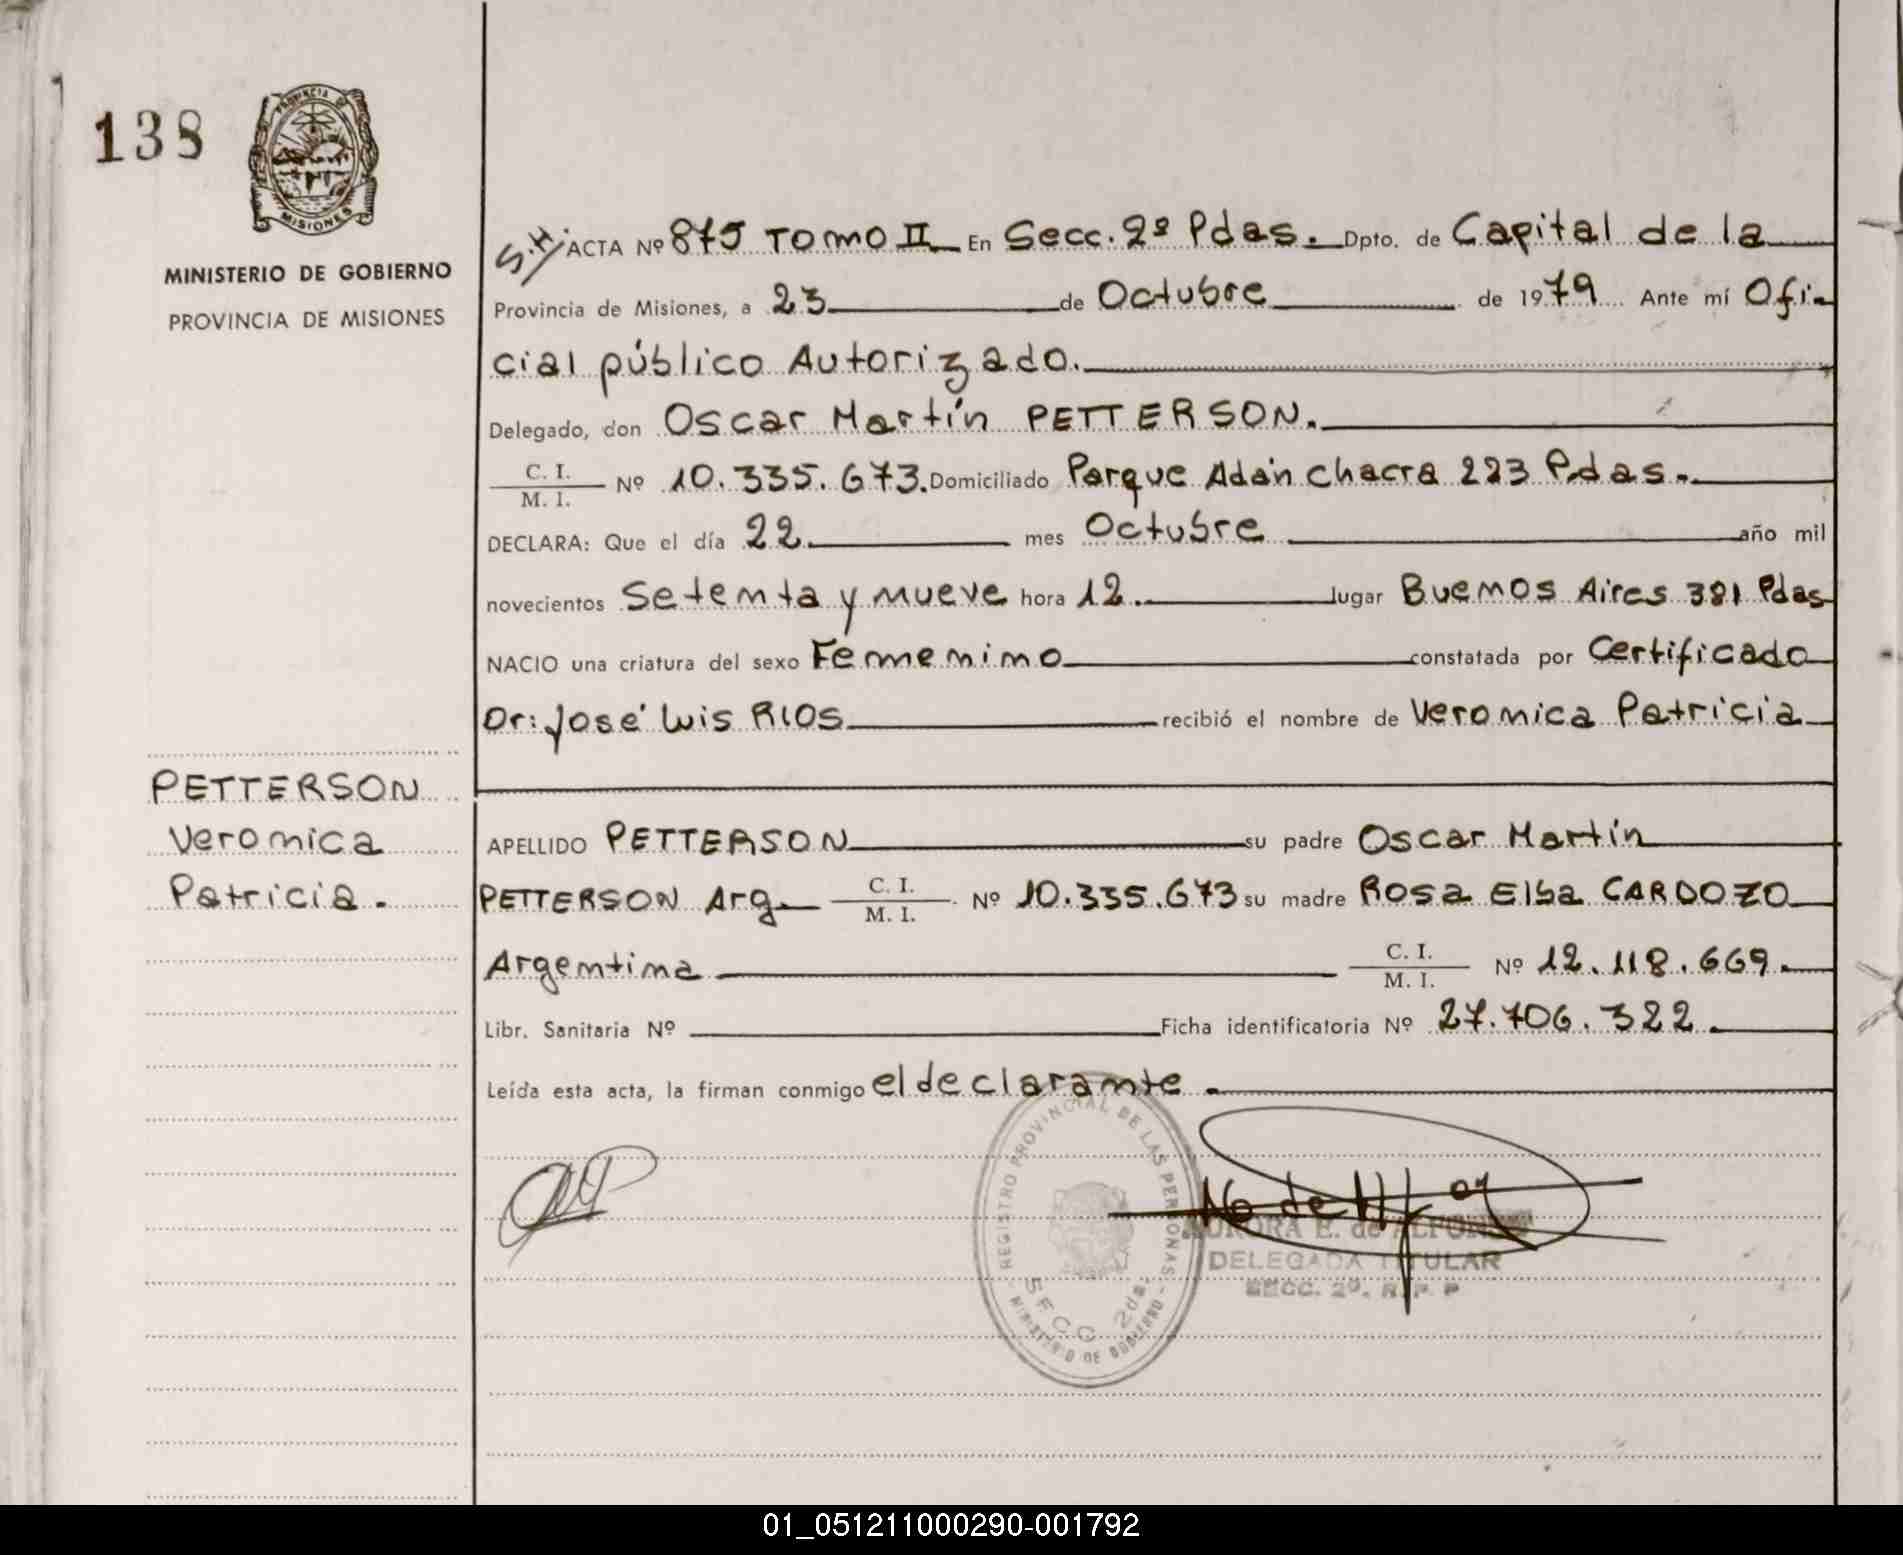 138
PROVINCIA DE
MISIONES
MINISTERIO DE GOBIERNO
PROVINCIA DE MISIONES
S.H. ACTA Nº 875 TOMO II En Secc. 2º Pdas. Dpto. de Capital de la
Provincia de Misiones, a 23 de Octubre de 1979 Ante mí Ofi-
cial público Autorizado.
Delegado, don Oscar Martín PETTERSON.
C. I.
M. I. Nº 10.335.673. Domiciliado Parque Adán Chacra 223 Pdas.
DECLARA: Que el día 22 mes Octubre año mil
novecientos Setenta y nueve hora 12. lugar Buenos Aires 381 Pdas
NACIO una criatura del sexo Femenino constatada por Certificado
Dr: José Luis RIOS recibió el nombre de Veronica Patricia
PETTERSON
Veronica
Patricia.
APELLIDO PETTERSON su padre Oscar Martín
PETTERSON Arg. C. I.
M. I. Nº 10.335.673 su madre Rosa Elba CARDOZO
Argentina C. I.
M. I. Nº 12.118.669.
Libr. Sanitaria Nº Ficha identificatoria Nº 27.706.322.
Leída esta acta, la firman conmigo el declarante.
REGISTRO PROVINCIAL DE LAS PERSONAS
SECC 2da.
MINISTERIO DE GOBIERNO
AURORA E. de ALFONSO
DELEGADA TITULAR
SECC. 2º. R. P. P
01_051211000290-001792